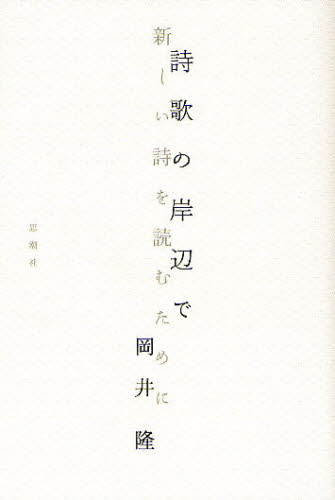 詩歌の岸辺で
新しい詩を読むために
岡井隆
思潮社